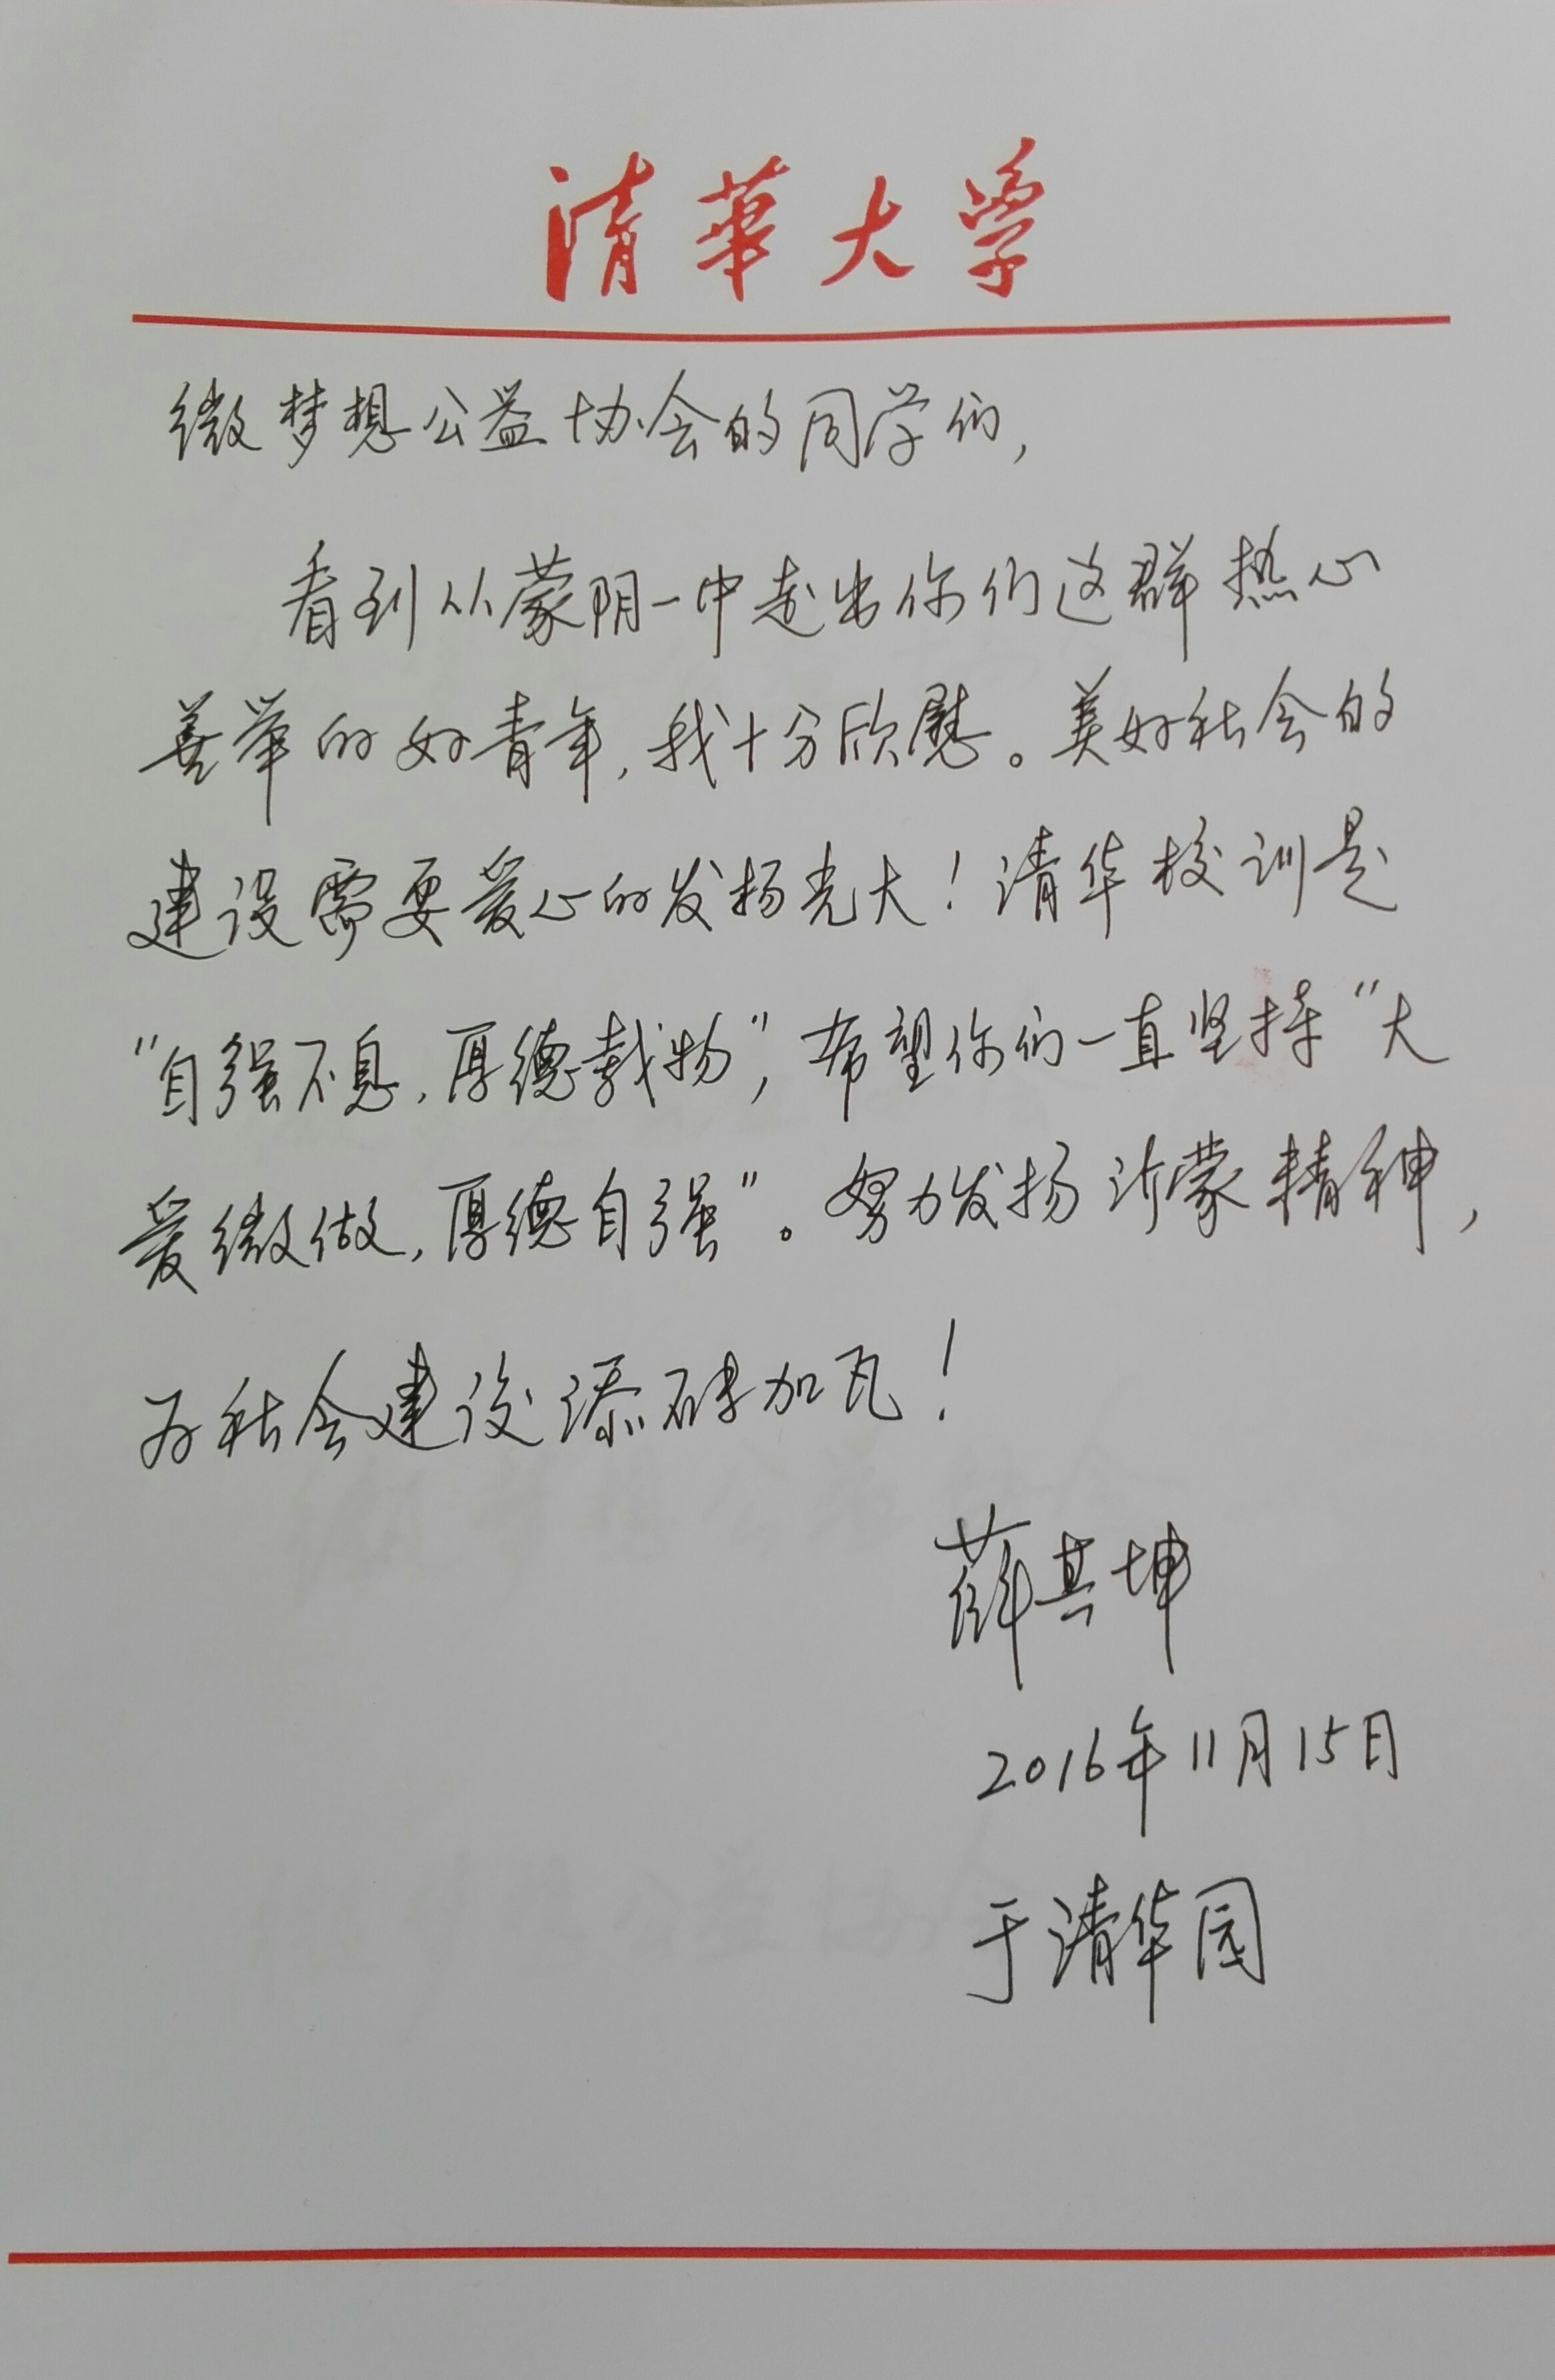 清華大学
微梦想公益协会的同学们,
看到从蒙阴一中走出你们这群热心
善举的好青年,我十分欣慰。美好社会的
建设需要爱心的发扬光大!清华校训是
"自强不息,厚德载物",希望你们一直坚持"大
爱微做,厚德自强"。努力发扬沂蒙精神,
为社会建设添砖加瓦!
薛其坤
2016年11月15日
于清华园